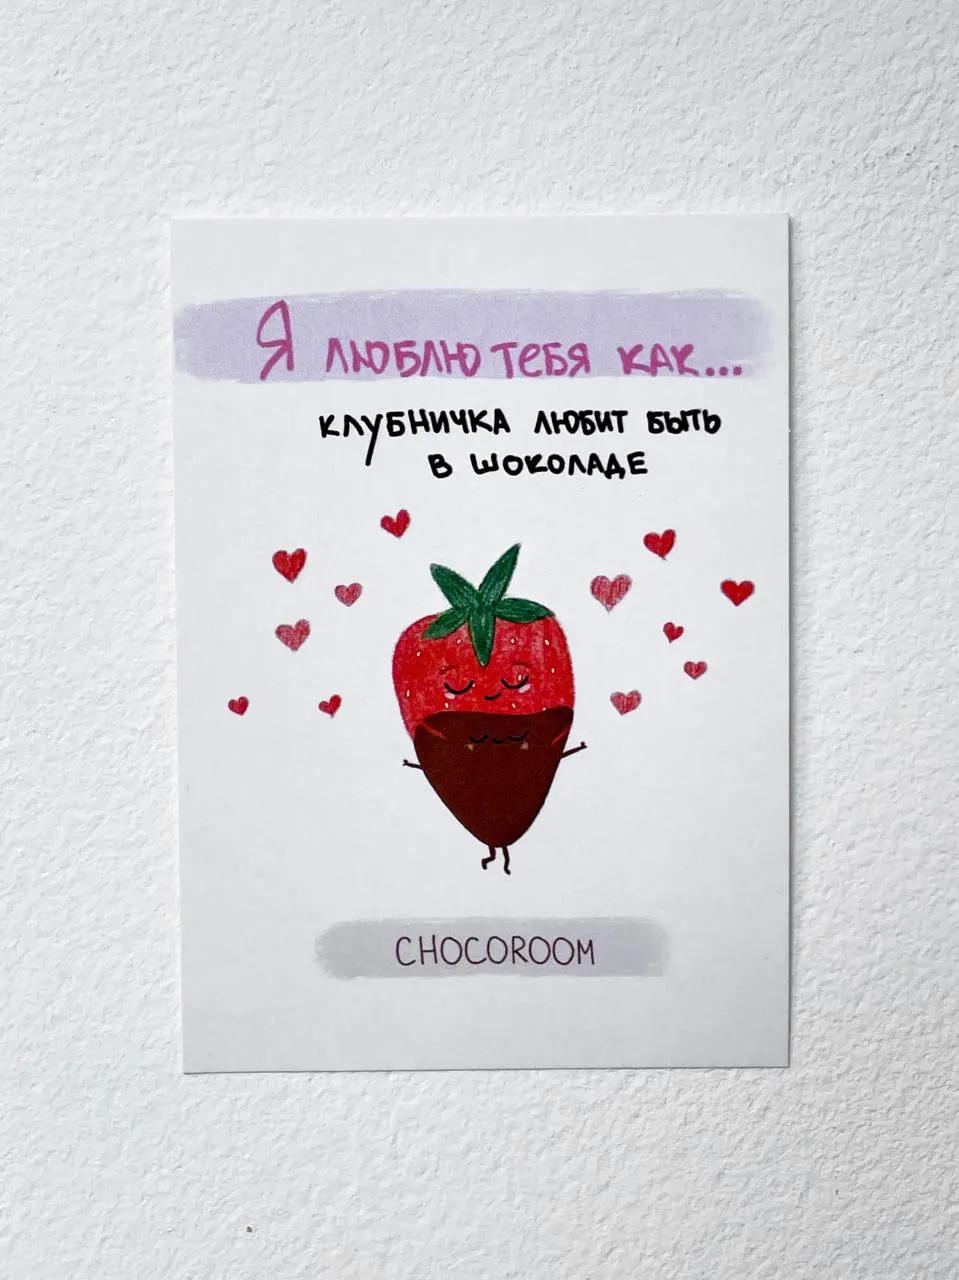 Я ЛЮБЛЮ ТЕБЯ КАК...
КЛУБНИЧКА ЛЮБИТ БЫТЬ
В ШОКОЛАДЕ
CHOCOROOM